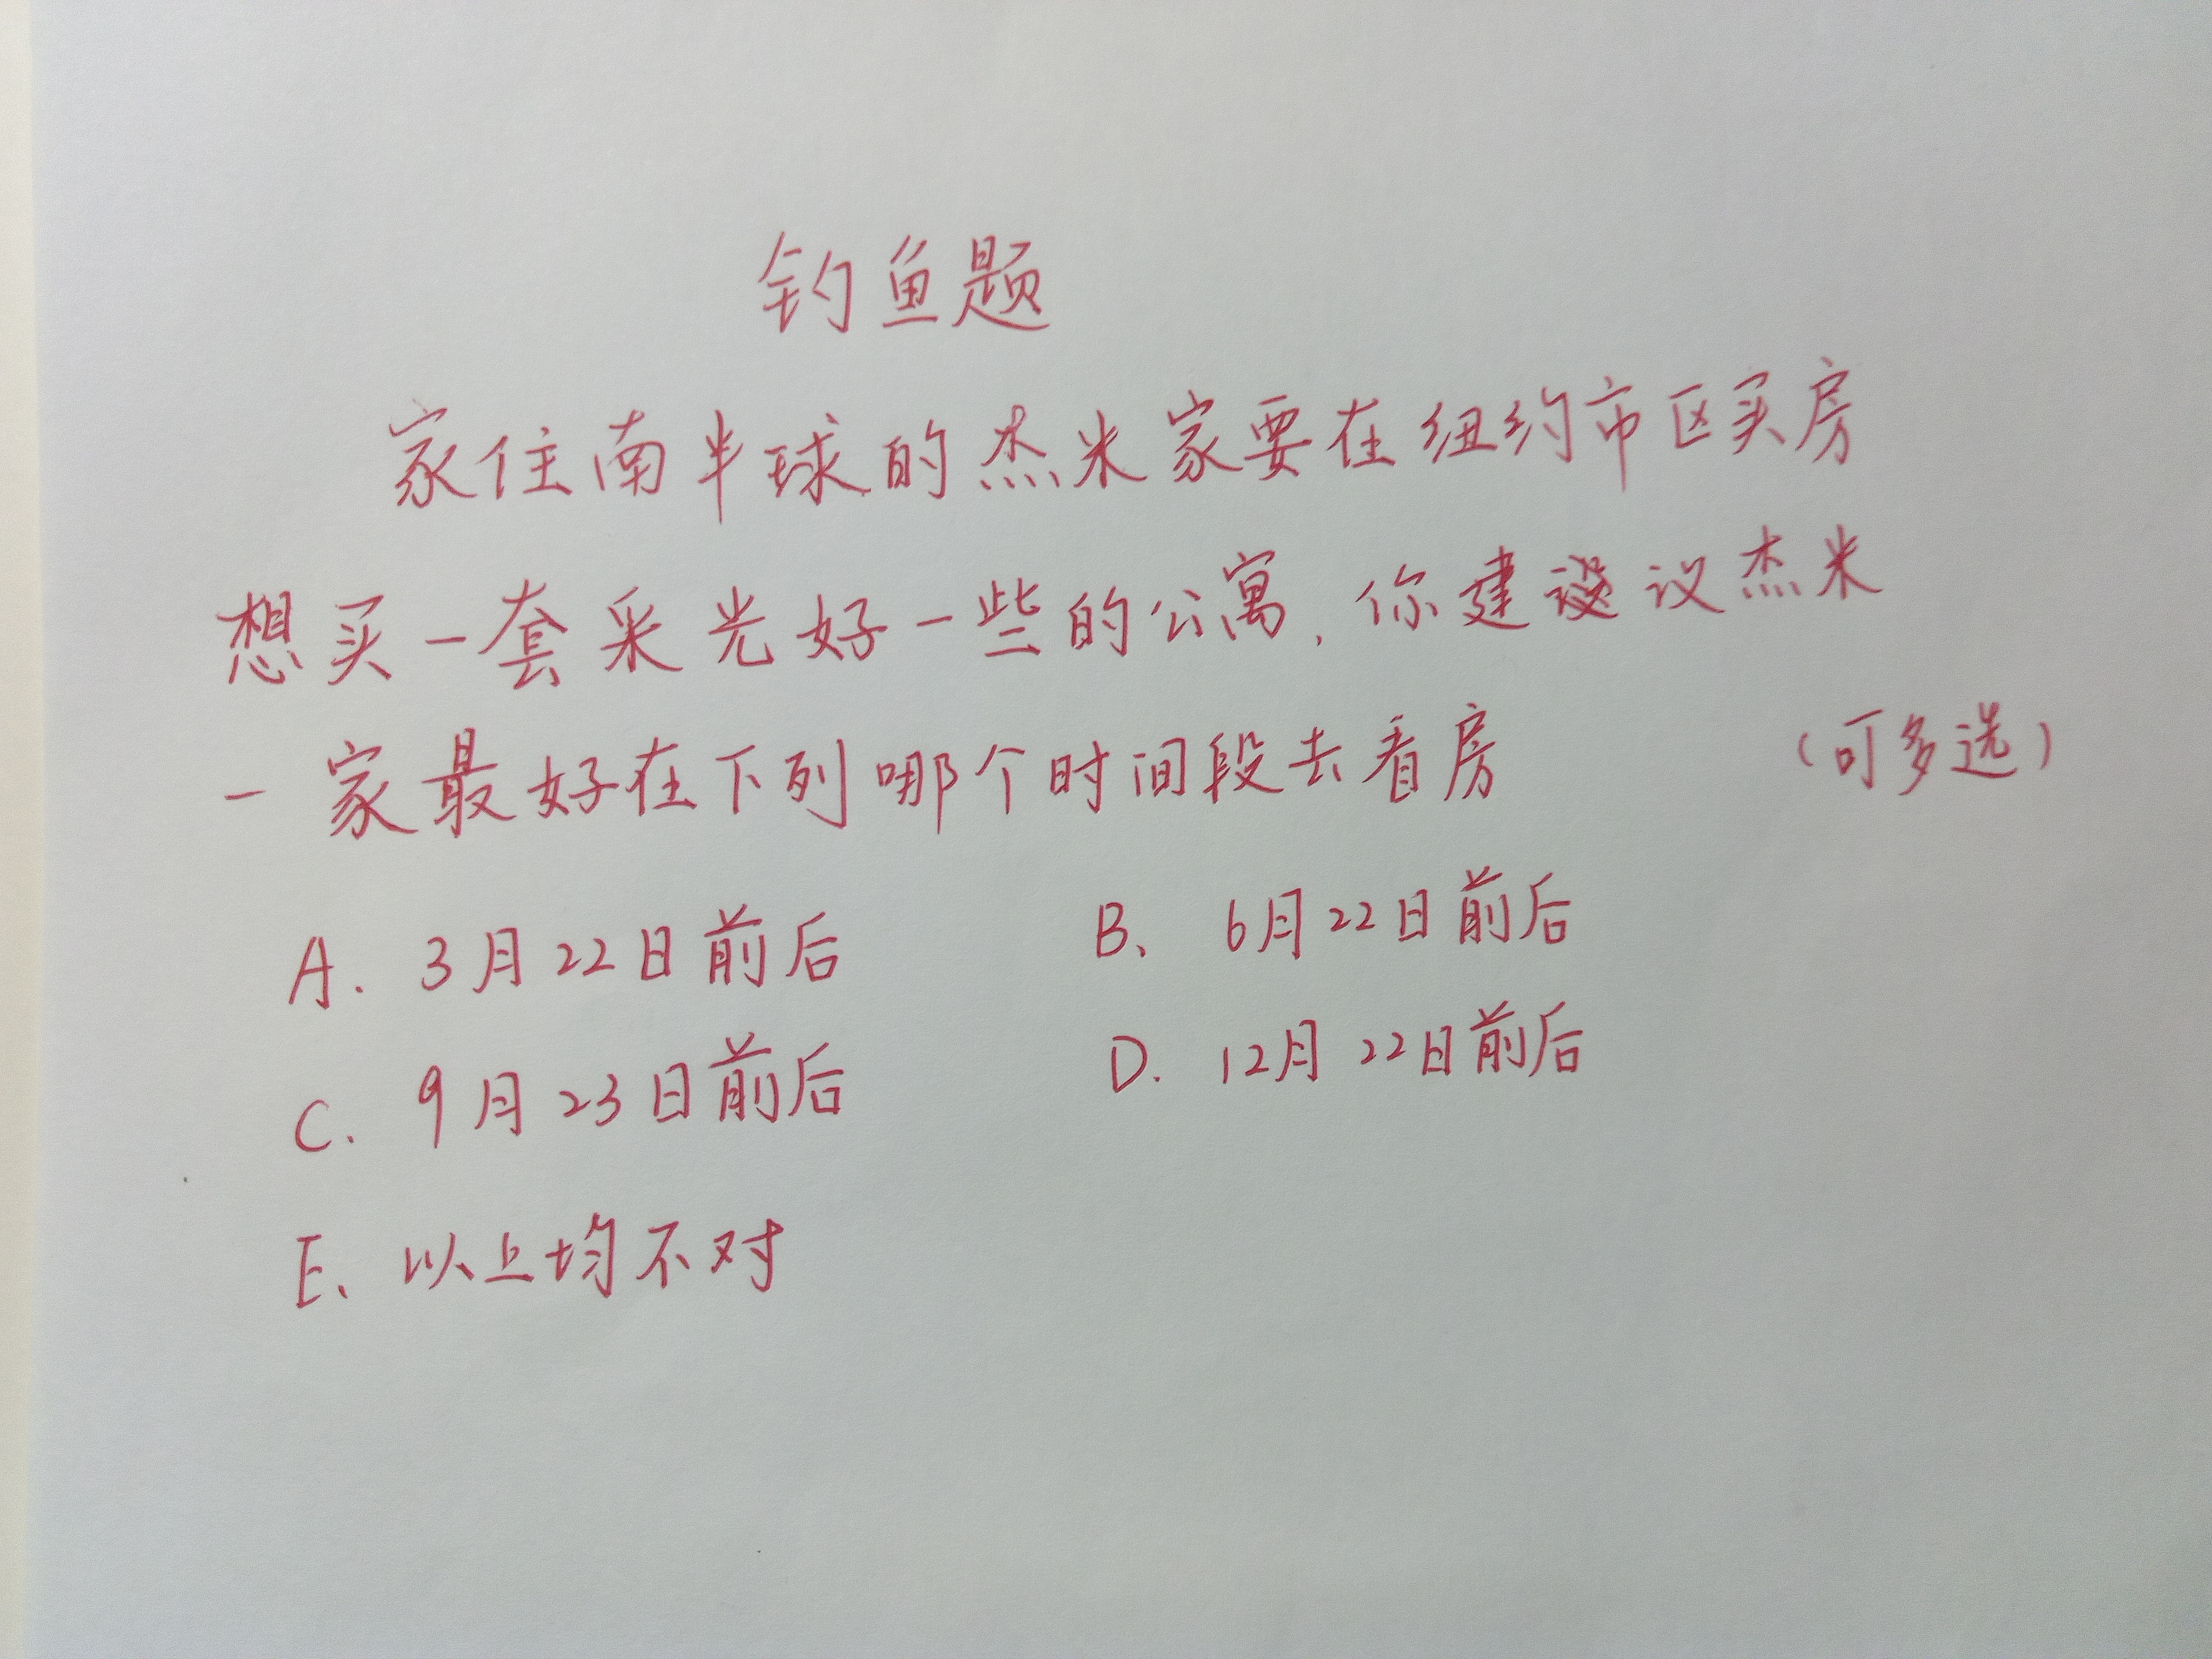 钓鱼题
家住南半球的杰米家要在纽约市区买房
想买一套采光好一些的公寓，你建议杰米
一家最好在下列哪个时间段去看房 （可多选）
A. 3月22日前后 B、 6月22日前后
C. 9月23日前后 D. 12月22日前后
E、以上均不对